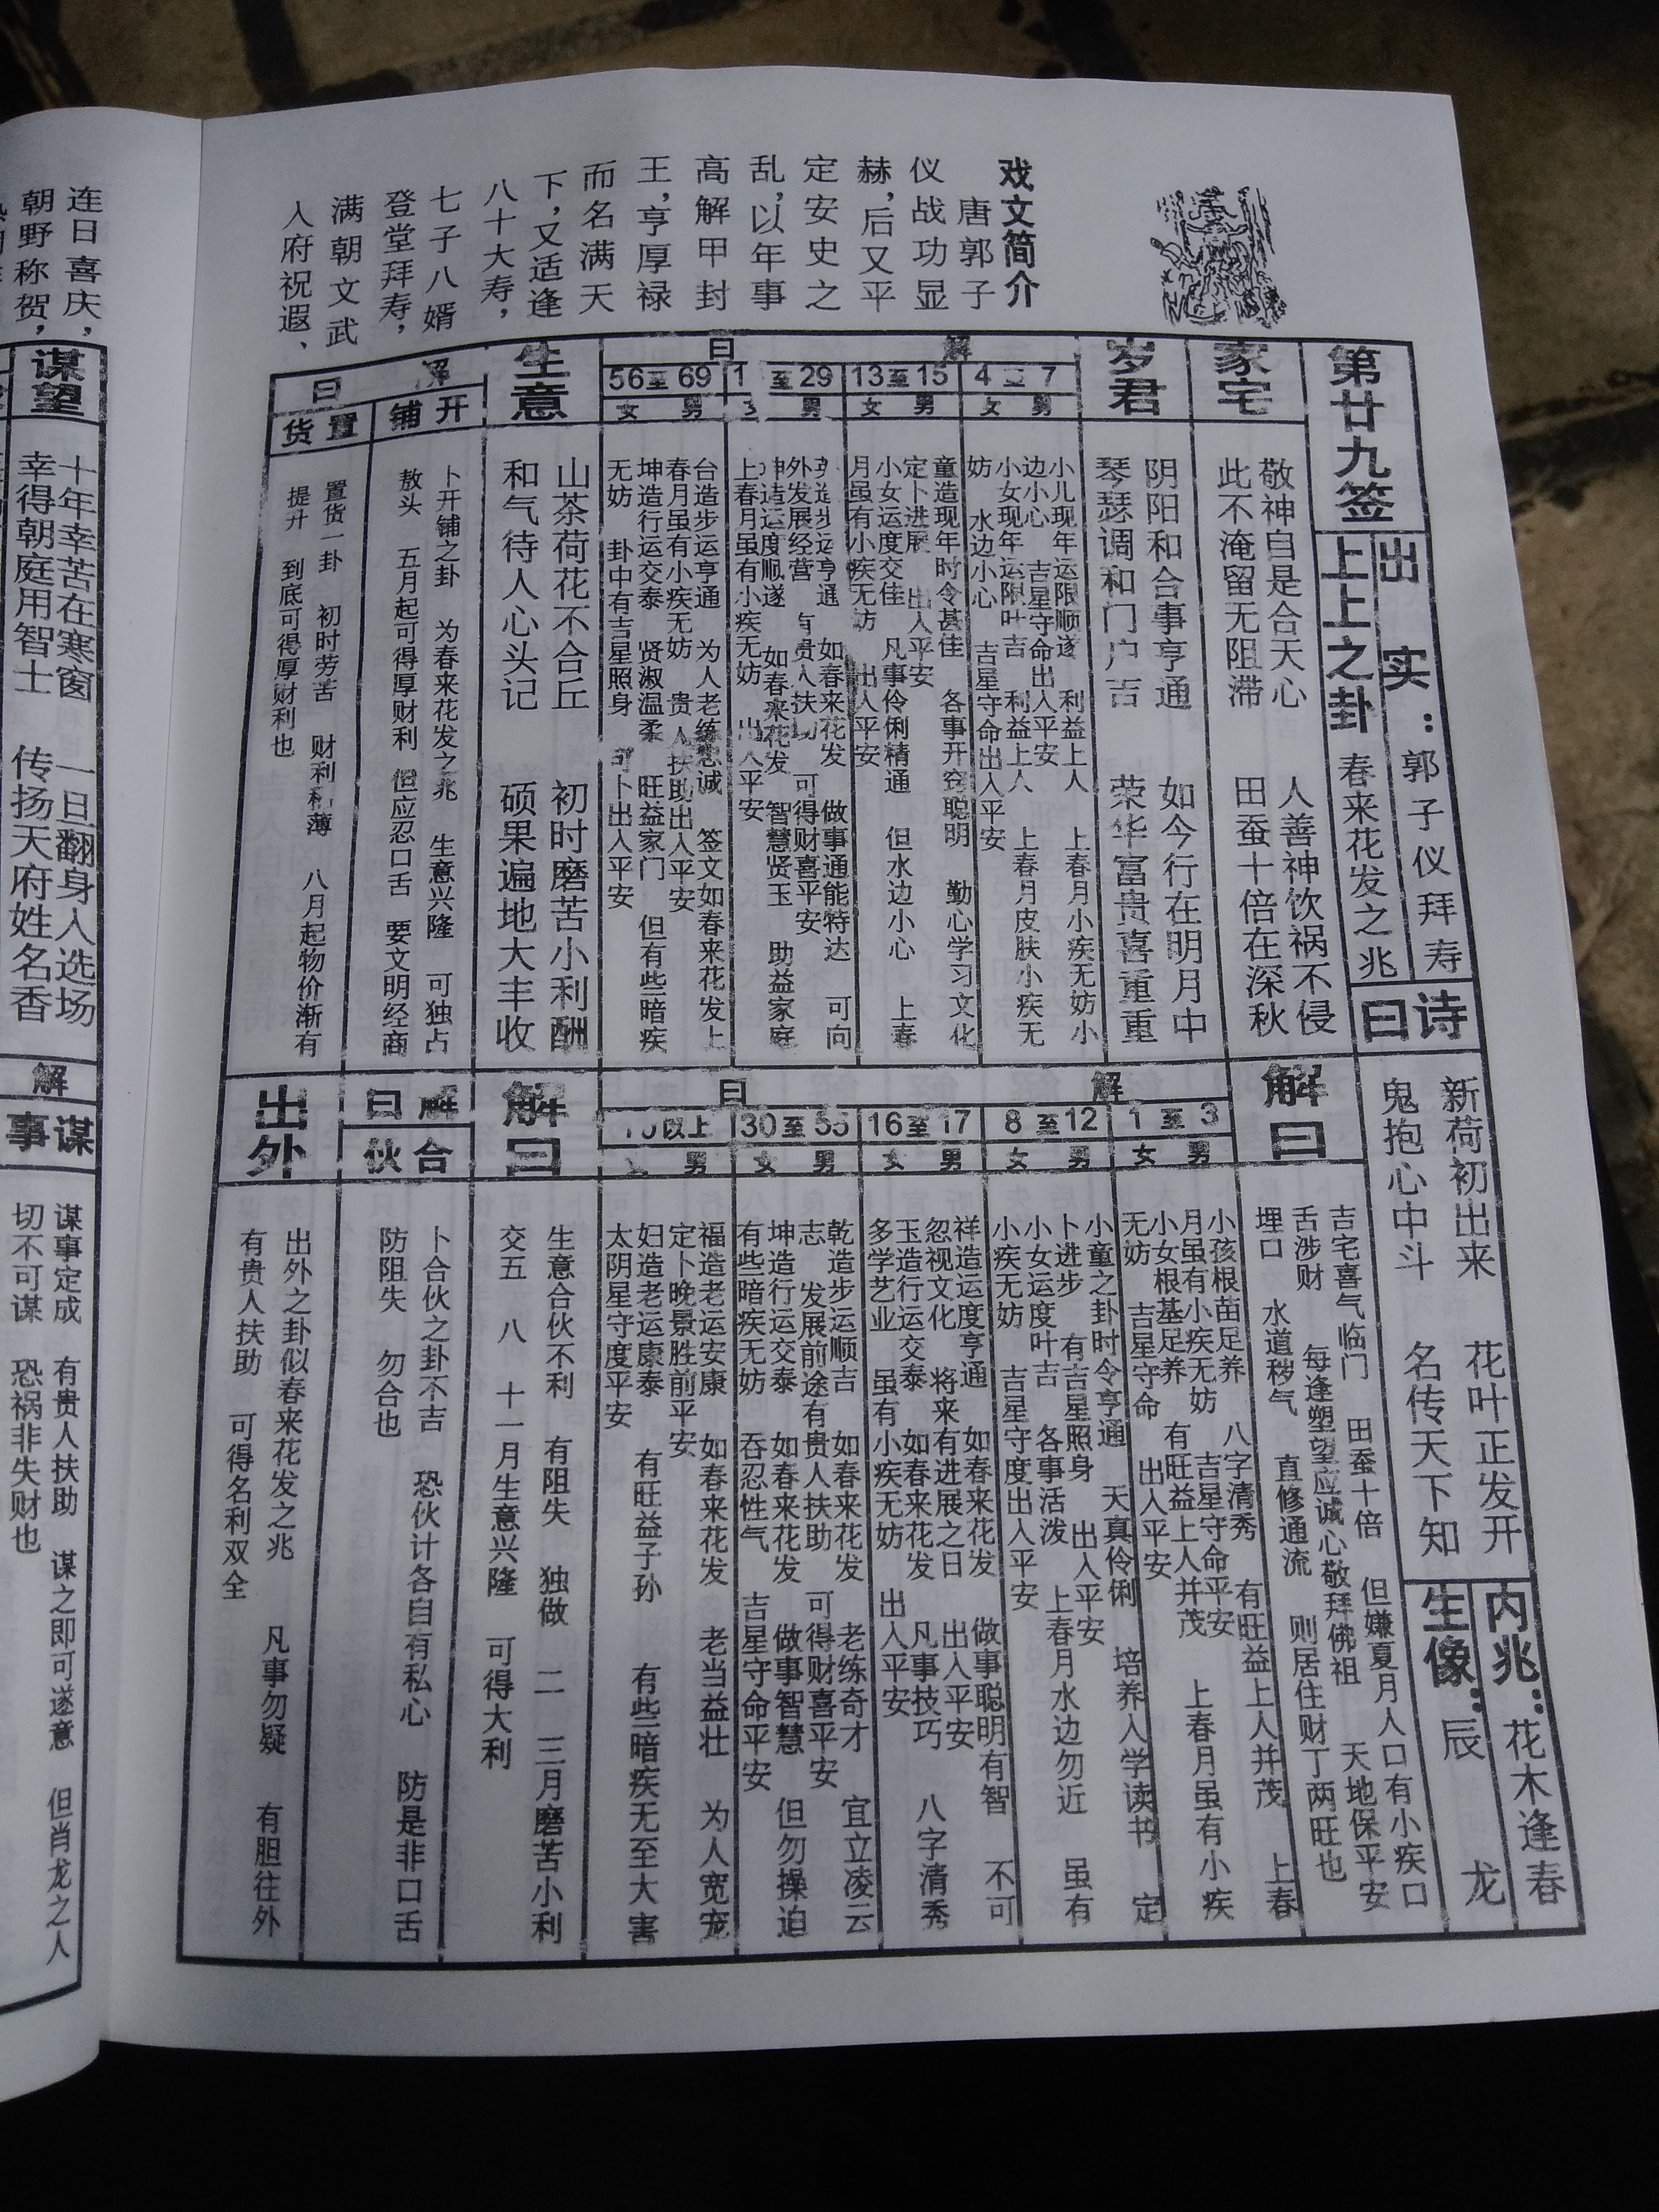 戏文简介
唐郭子
仪战功显
赫，后又平
定安史之
乱，以年事
高解甲封
王，享厚禄
而名满天
下，又适逢
八十大寿，
七子八婿
登堂拜寿，
满朝文武
入府祝遐、
第廿九签
出实：郭子仪拜寿
上上之卦 春来花发之兆
诗曰
新荷初出来 花叶正发开
鬼抱心中斗 名传天下知
内兆：花木逢春
生像：辰 龙
家宅
敬神自是合天心 人善神饮祸不侵
此不淹留无阻滞 田蚕十倍在深秋
解曰
吉宅喜气临门 田蚕十倍 但嫌夏月人口有小疾口
舌涉财 每逢塑望应诚心敬拜佛祖 天地保平安
埋口 水道秽气 直修通流 则居住财丁两旺也
岁君
阴阳和合事亨通 如今行在明月中
琴瑟调和门户吉 荣华富贵喜重重
解曰
1至3
男
女
小孩根苗足养 八字清秀 有旺益上人并茂 上春
月虽有小疾无妨 吉星守命平安
小女根基足养 有旺益上人并茂 上春月虽有小疾
无妨 吉星守命 出入平安
4 7
男
女
小儿现年运限顺遂 利益上人 上春月小疾无妨小
边小心 吉星守命出入平安
小女现年运限叶吉 利益上人 上春月皮肤小疾无
妨 水边小心 吉星守命出入平安
8至12
男
女
小童之卦时令亨通 天真伶俐 培养入学读书 定
卜进步 有吉星照身 出入平安
小女运度叶吉 各事活泼 上春月水边勿近 虽有
小疾无妨 吉星守度出入平安
13至15
男
女
童造现年时令甚佳 各事开窍聪明 勤心学习文化
定卜进展 出入平安
小女运度交佳 凡事伶俐精通 但水边小心 上春
月虽有小疾无妨 出入平安
16至17
男
女
祥造运度亨通 如春来花发 做事聪明有智 不可
忽视文化 将来有进展之日 出入平安
玉造行运交泰 如春来花发 凡事技巧 八字清秀
多学艺业 虽有小疾无妨 出入平安
至29
男
造步运亨通 如春来花发 做事通能特达 可向
外发展经营 有贵人扶 可得财喜平安
造运度顺遂 如春来花发 智慧贤玉 助益家庭
上春月虽有小疾无妨 出入平安
30至55
男
女
乾造步运顺吉 如春来花发 老练奇才 宜立凌云
志 发展前途有贵人扶助 可得财喜平安
坤造行运交泰 如春来花发 做事智慧 但勿操迫
有些暗疾无妨 吞忍性气 吉星守命平安
56至69
男
女
台造步运亨通 为人老练忠诚 签文如春来花发上
春月虽有小疾无妨 贵人扶助出入平安
坤造行运交泰 贤淑温柔 旺益家门 但有些暗疾
无妨 卦中有吉星照身 可卜出入平安
以上
男
福造老运安康 如春来花发 老当益壮 为人宽宠
定卜晚景胜前平安
妇造老运康泰 有旺益子孙 有些暗疾无至大害
太阴星守度平安
生意
山茶荷花不合丘 初时磨苦小利酬
和气待人心头记 硕果遍地大丰收
解曰
生意合伙不利 有阻失 独做 二 三月磨苦小利
交五 八 十一月生意兴隆 可得大利
解曰
开铺
卜开铺之卦 为春来花发之兆 生意兴隆 可独占
敖头 五月起可得厚财利 但应忍口舌 要文明经商
置货
置货一卦 初时劳苦 财利 薄 八月起物价渐有
提升 到底可得厚财利也
解曰
合伙
卜合伙之卦不吉 恐伙计各自有私心 防是非口舌
防阻失 勿合也
出外
出外之卦似春来花发之兆 凡事勿疑 有胆往外
有贵人扶助 可得名利双全
连日喜庆，
朝野称贺，
谋望
十年幸苦在寒窗 一旦翻身入选场
幸得朝庭用智士 传扬天府姓名香
解
谋事
谋事定成 有贵人扶助 谋之即可遂意 但肖龙之人
切不可谋 恐祸非失财也